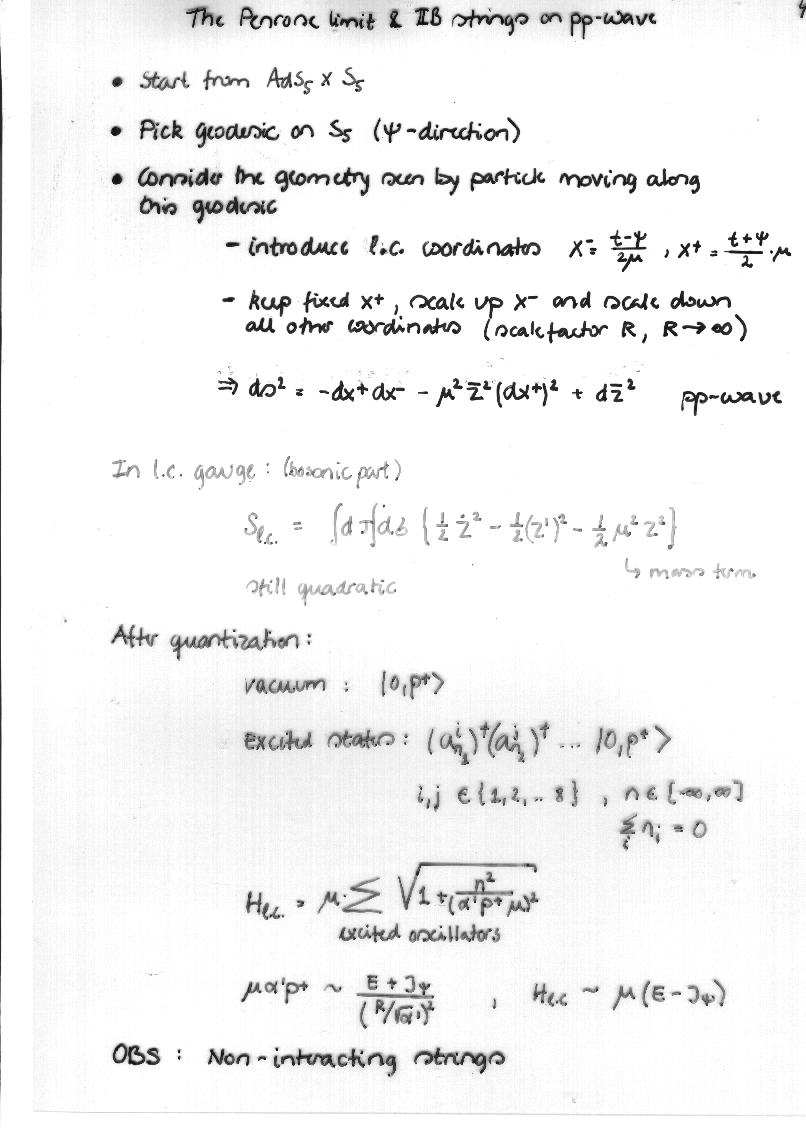 4
The Penrose limit & IIB strings on pp-wave
• Start from AdS₅ x S₅
• Pick geodesic on S₅ (Ψ-direction)
• Consider the geometry seen by particle moving along
this geodesic
- introduce l.c. coordinates X⁻ = (t-Ψ)/2μ , X⁺ = (t+Ψ)/2 · μ
- keep fixed X⁺, scale up X⁻ and scale down
all other coordinates (scale factor R, R→∞)
⇒ ds² = -dx⁺dx⁻ - μ² z̄² (dx⁺)² + dz̄² pp-wave
In l.c. gauge : (bosonic part)
S_l.c. = ∫dτ∫dσ { ½ ż² - ½(z')² - ½ μ² z² }
↳ mass term
still quadratic
After quantization :
vacuum : |0,p⁺>
Excited states : (a^i_n₁)†(a^j_n₂)† ... |0,p⁺>
i,j ∈ {1,2,.. 8} , n ∈ [-∞,∞]
Σ_i n_i = 0
H_l.c. = μ·Σ √(1 + n²/(α'p⁺μ)²)
excited oscillators
μα'p⁺ ~ (E + J_Ψ)/(R/√α')² , H_l.c ~ μ(E - J_Ψ)
OBS : Non-interacting strings